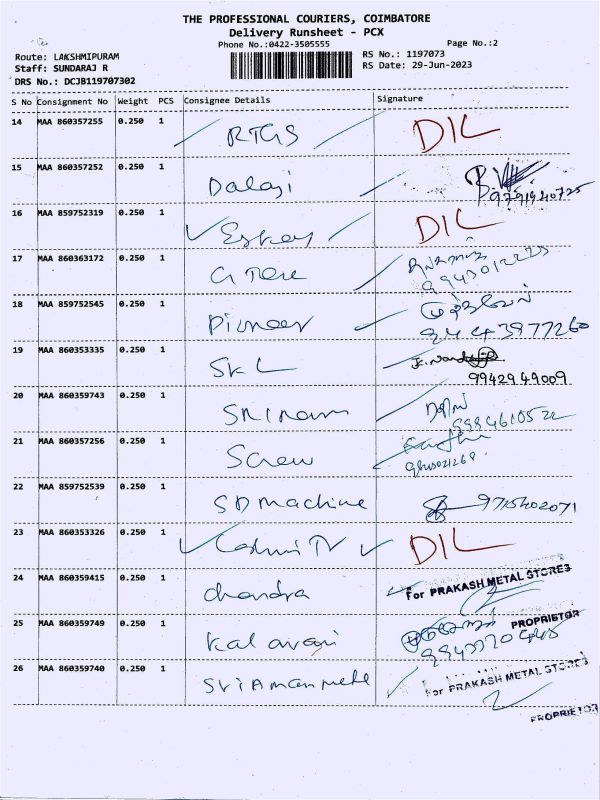 THE PROFESSIONAL COURIERS, COIMBATORE
Delivery Runsheet - PCX
Phone No.:0422-3505555
Page No.:2
Route: LAKSHMIPURAM
RS No.: 1197073
Staff: SUNDARAJ R
RS Date: 29-Jun-2023
DRS No.: DCJB119707302
S No Consignment No Weight PCS Consignee Details Signature
14 MAA 860357255 0.250 1 RTGS DIL
15 MAA 860357252 0.250 1 Dalaji
9791940725
16 MAA 859752319 0.250 1 DIL
17 MAA 860363172 0.250 1
18 MAA 859752545 0.250 1 Pioneer
9443977260
19 MAA 860353335 0.250 1 SKL
9942949009
20 MAA 860359743 0.250 1 SRIRam
21 MAA 860357256 0.250 1 Screw
22 MAA 859752539 0.250 1 SD machine 9715402071
23 MAA 860353326 0.250 1 TV DIL
24 MAA 860359415 0.250 1 chandra For PRAKASH METAL STORES
PROPRIETOR
25 MAA 860359749 0.250 1 Kalavani
26 MAA 860359740 0.250 1 For PRAKASH METAL STORES
PROPRIETOR